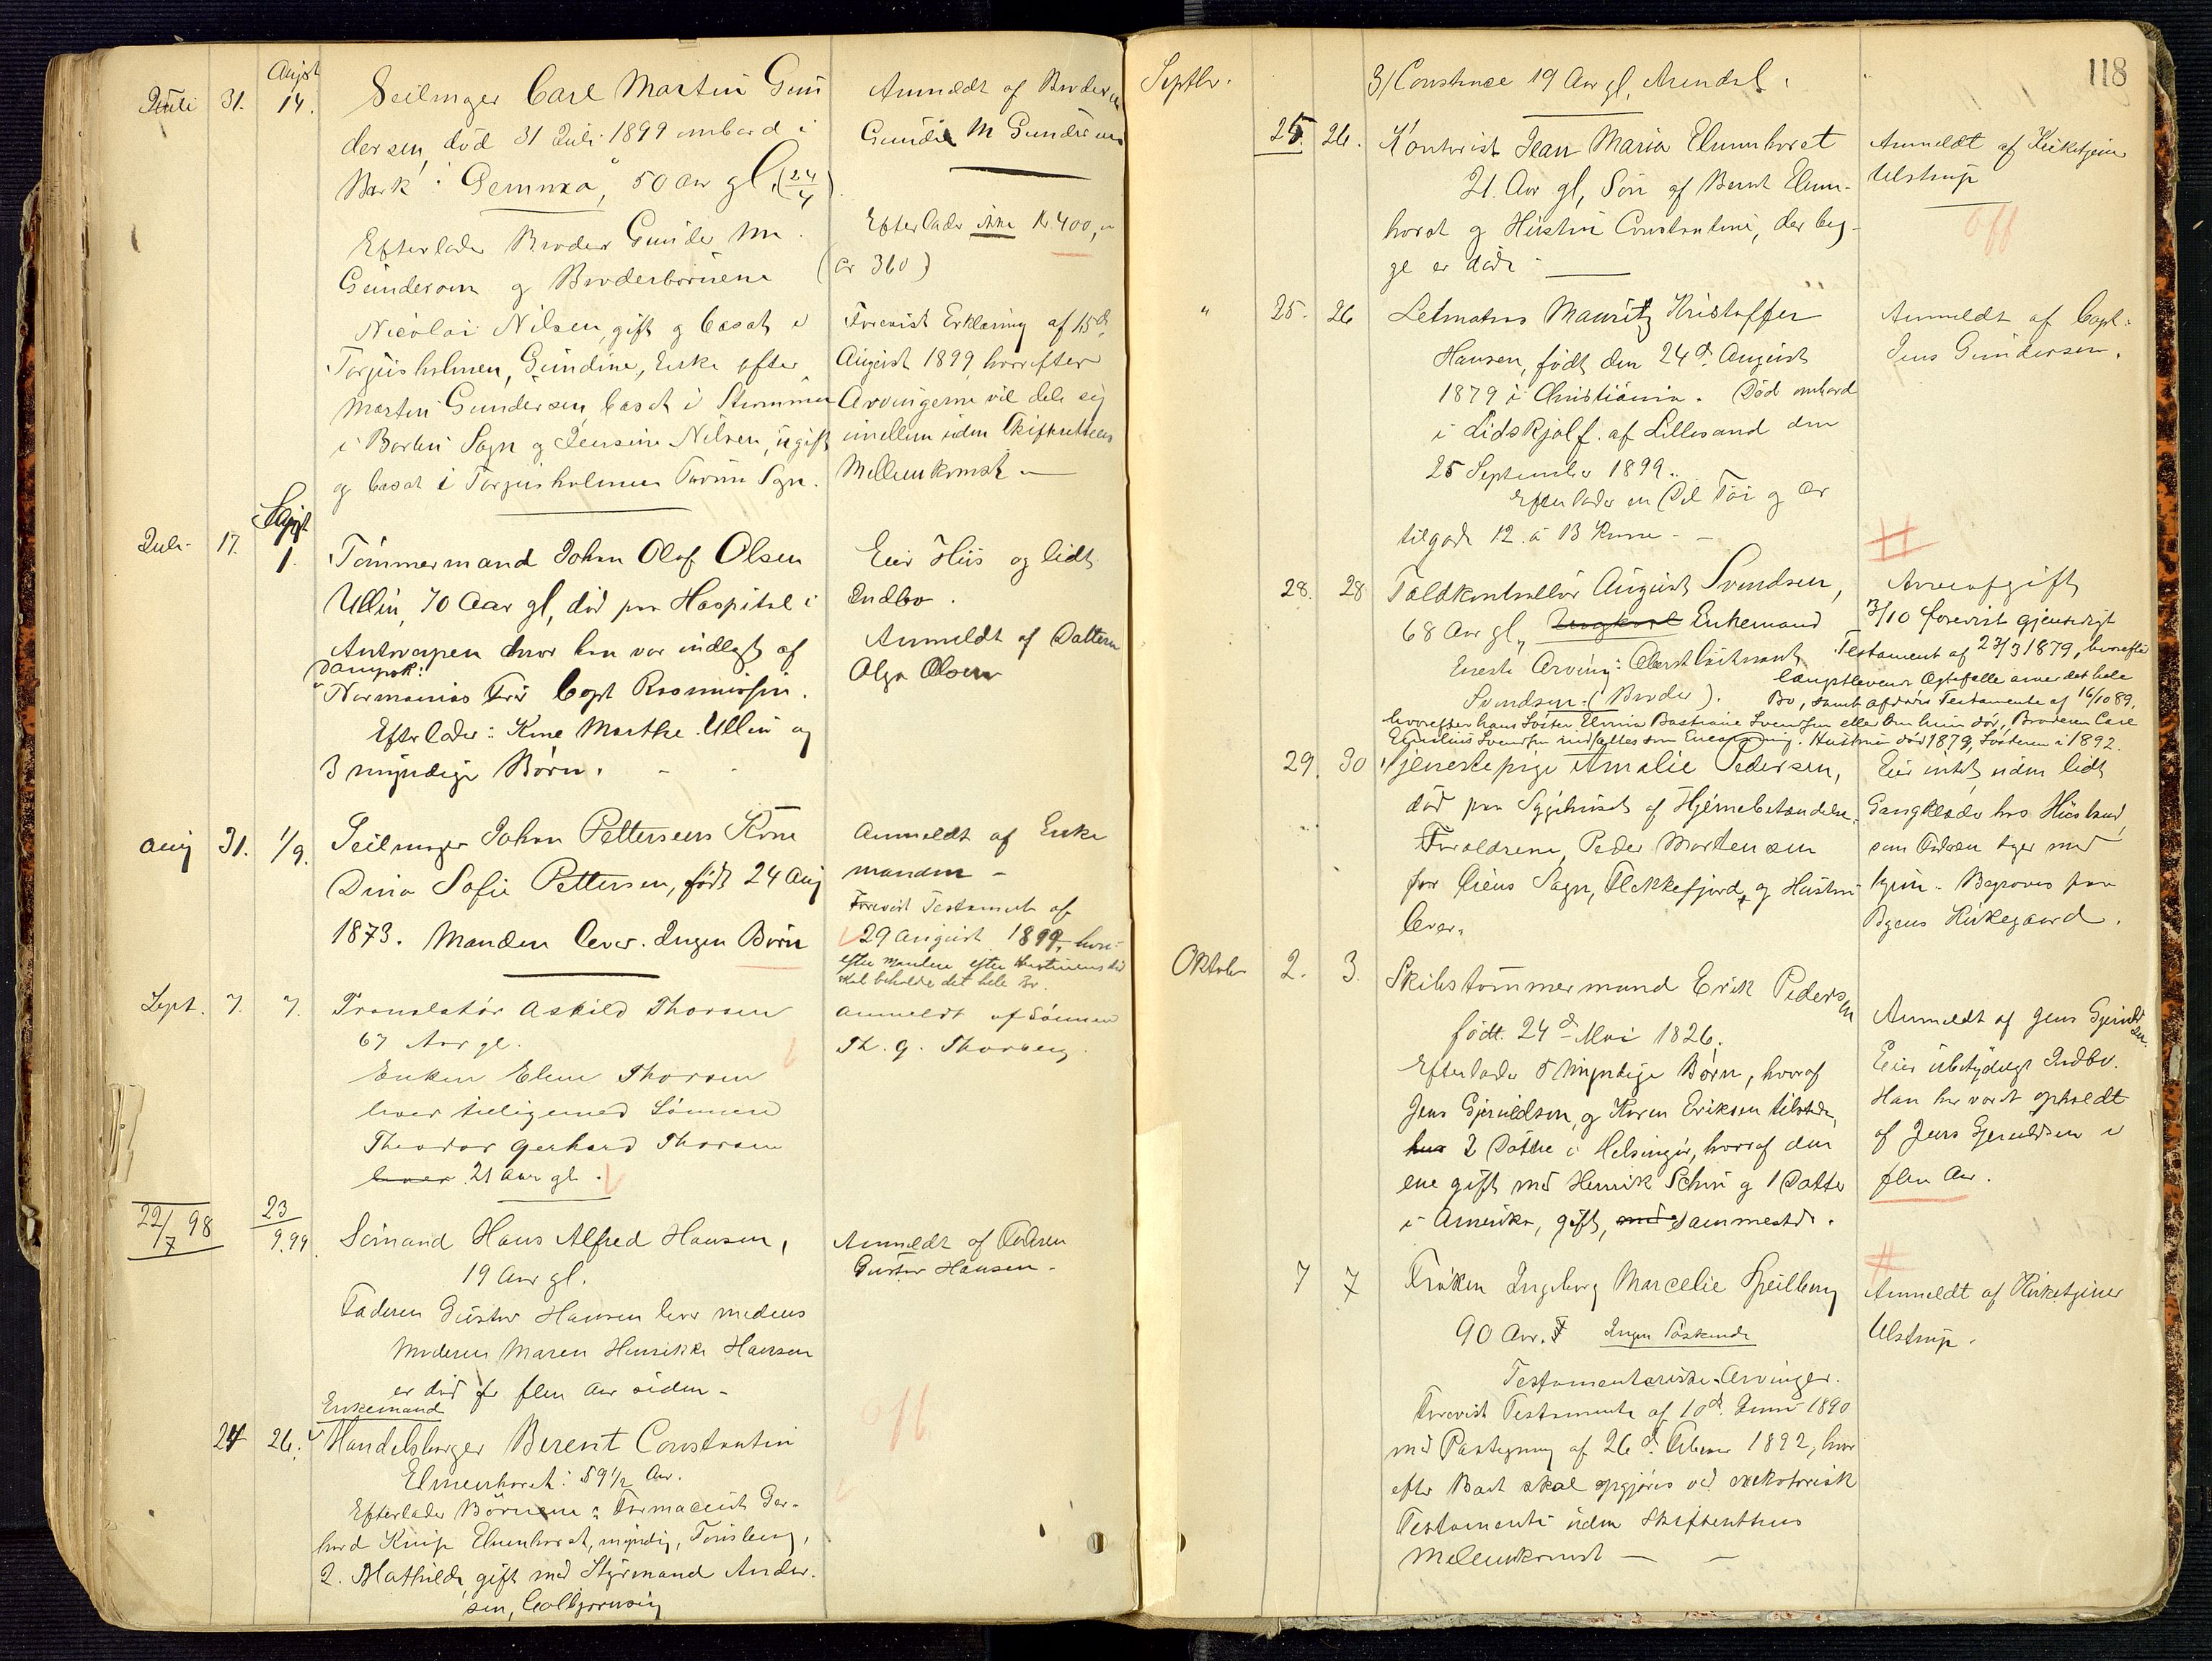 August
Juli 31. 14. Seilmager Carl Martin Gun
dersen, död 31 Juli 1899 ombord i
Bark: "Gemma", 50 Aar gl. (24/4).
Efterlader Broder Gunder M.
Gundersen og Broderbörnene
Nicolai Nilsen, gift og bosat i
Torjusholmen, Gundine, Enke efter
Martin Gundersen bosat i
i Barbu Sogn og Jensine Nilsen, ugift
og bosat i Torjusholmen Tromö Sogn.
Anmeldt af Broderen
Gunder M Gundersen
Efterlader ikke Kr. 400,
(Cr 360)
Forevist Erklæring af 15de
August 1899, hvorefter
Arvingerne vil dele sig
imellem uden Skifterettens
Mellemkomst.
Sept
Juli 17. 1. Tömmermand Johan Olaf Olsen
Ullin, 70 Aar gl, död paa Hospital i
Antwerpen hvor han var indlagt af
Dampsk:
"Normanias Förer Capt Rasmussen.
Efterlader: Kone Marthe Ullin og
3 myndige Börn.
Eier Hus og lidt
Indbo.
Anmeldt af Datteren
Olga Olsen
Aug 31. 1/9. Seilmager Johan Pettersens Kone
Dina Sofie Pettersen, född 24 Aug
1873. Manden lever. Ingen Börn
Anmeldt af Enke
manden -
Forevist Testament af
29 August 1899, hvor-
efter Manden efter Hustruens död
skal beholde det hele Bo.
Sept. 7. 7. Translatör Askild Thorsen
67 Aar gl.
Enken Elene Thorsen
lever tilligemed Sönnen
Theodor Gerhard Thorsen
lever 21 Aar gl.
Anmeldt af Sönnen
Th. G. Thorsen
22/7 98 23/9.99. Sömand Hans Alfred Hansen,
19 Aar gl.
Faderen Gustav Hansen lever medens
Moderen Maren Henrikke Hansen
er död for flere Aar siden -
Anmeldt af Faderen
Gustav Hansen.
Enkemand
24 26. Handelsborger Berent Constantin
Elmenhorst: 59 1/2 Aar.
Efterlader Börnene: Farmaceut Ger-
hard Knip Elmenhorst, myndig, Tönsberg,
2. Mathilde, gift med Styrmand Ander-
sen, Colbjørnsvig
off
118
Septbr. 3/ Constance 19 Aar gl, Arendal.
25. 26. Kontorist Jean Maria Elmenhorst
21 Aar gl, Sön af Bernt Elmen-
horst og Hustru Constantine, der beg-
ge er döde -
Anmeldt af Kirketjener
Ulstrup
off
" 25. 26 Letmatros Mauritz Kristoffer
Hansen, födt den 24de August
1879 i Christiania. Död ombord
i Lidskjalf af Lillesand den
25 September 1899.
Efterlader en Del Töi og Cr
tilgode 12 á 13 Krone -
Anmeldt af Capt:
Jens Gundersen.
28. 28 Toldkontrollör August Svendsen,
68 Aar gl, Ungkarl Enkemand
Eneste Arving: Oberstlöitnant
Svendsen. (Broder).
Arveafgift
3/10 forevist gjensidigt
Testament af 27/3 1879, hvorefter
længstlevende Ægtefælle arver det hele
Bo, samt afdödes Testamente af 16/10 89,
hvorefter hans Söster Elvina Bastiane Svendsen eller om hun dör, Broderen Carl
Emilius Svendsen indsættes som Enearving. Hustruen död 1879, Sösteren i 1892.
29. 30 Tjenestepige Amalie Pedersen,
död paa Sygehuset af Hjernebetændelse.
Forældrene, Peder Mortensen
for Liens Sogn, Flekkefjord, og Hustru
lever.
Eier intet uden lidt
Gangklæder hos Husbond,
som Faderen tager med
hjem. Begraves paa
Byens Kirkegaard.
Oktober 2. 3. Skibstömmermand Erik Pedersen
födt 24de Mai 1826.
Efterlader 5 Myndige Börn, hvoraf
Jens Gjeruldsen, og Karen Eriksen tilstede,
har 2 Döttre i Helsingör, hvoraf den
ene gift med Henrik Schou og 1 Datter
i Amerika, gift, med sammesteds.
Anmeldt af Jens Gjeruld
sen.
Eier ubetydeligt Indbo.
Han har været opholdt
af Jens Gjeruldsen i
flere Aar.
7 7 Fröken Ingeborg Marcelie Speilberg
90 Aar. Ingen Söskende
Testamentariske Arvinger.
Forevist Testamente af 10de Juni 1890
med Paategning af 26de Februar 1892, hvor
efter Boet skal opgjöres ved exekutorisk
Testamente uden Skifterettens
Mellemkomst
Anmeldt af Kirketjener
Ulstrup.